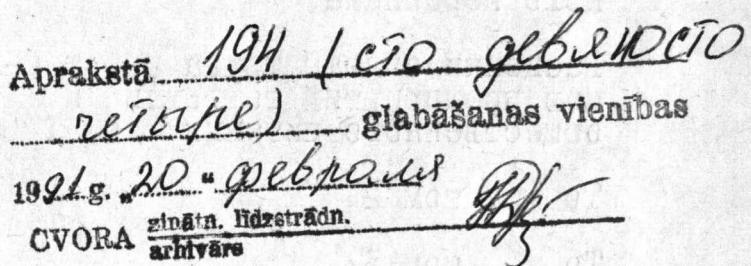 Aprakstā 194 (сто девяносто
четыре) glabāšanas vienības
1991 g. „20“ февраля
CVORA zinātn. līdzstrādn.
arhivārs